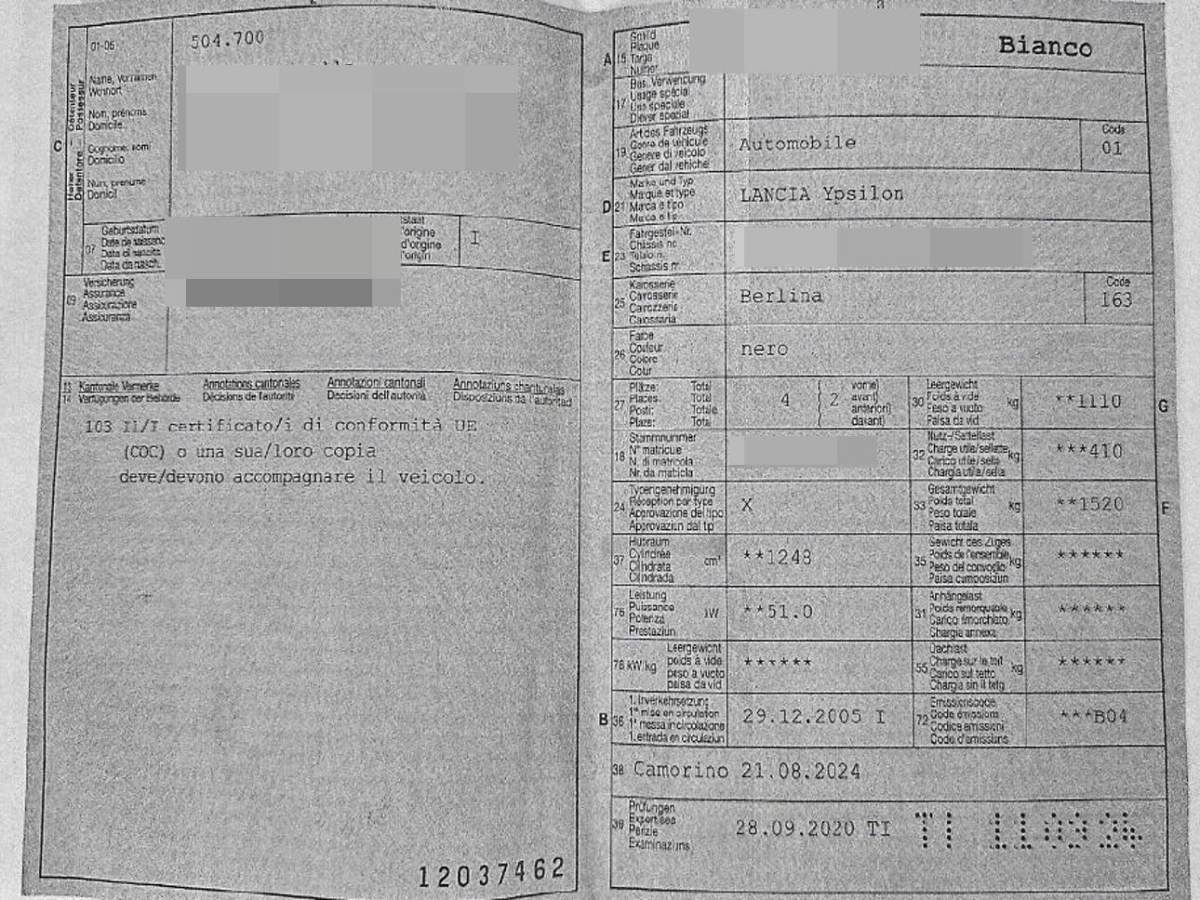 01-06
504.700
C
Halter — Détenteur
Detentore — Possessur
Name, Vornamen
Wohnort
Nom, prénoms
Domicile
Cognome, nomi
Domicilio
Num, prenume
Domicil
07
Geburtsdatum
Date de naissance
Data di nascita
Data da nasch.
d'origine
d'origine
I
09
Versicherung
Assurance
Assicurazione
Assicuranza
13
14
Kantonale Vermerke
Verfügungen der Behörde
Annotations cantonales
Décisions de l'autorité
Annotazioni cantonali
Decisioni dell'autorità
Annotaziuns chantunalas
Disposiziuns da l'autoritad
103 Il/I certificato/i di conformità UE
(COC) o una sua/loro copia
deve/devono accompagnare il veicolo.
12037462
A
15
Schild
Plaque
Targa
Numer
Bianco
17
Bes. Verwendung
Usage spécial
Uso speciale
Diever spezial
19
Art des Fahrzeugs
Genre de véhicule
Genere di veicolo
Gener dal vehichel
Automobile
Code
01
D
21
Marke und Typ
Marque et type
Marca e tipo
Marca e tip
LANCIA Ypsilon
E
23
Fahrgestell-Nr.
Châssis no
Telaio n.
Schassis nr.
25
Karosserie
Carosserie
Carozzeria
Carossaria
Berlina
Code
163
26
Farbe
Couleur
Colore
Colur
nero
27
Plätze: Total
Places: Total
Posti: Totale
Plazs: Total
4
2
vorne)
avant)
anteriori)
davant)
30
Leergewicht
Poids à vide
Peso a vuoto
Paisa da vid
kg
**1110
G
18
Stammnummer
N° matricule
N. di matricola
Nr. da matricla
32
Nutz-/Sattellast
Charge utile/sellette
Carico utile/sella
Chargia utila/sella
kg
***410
24
Typengenehmigung
Réception par type
Approvazione del tipo
Approvaziun dal tip
X
33
Gesamtgewicht
Poids total
Peso totale
Paisa totala
kg
**1520
F
37
Hubraum
Cylindrée
Cilindrata
Cilindrada
cm³
**1248
35
Gewicht des Zuges
Poids de l'ensemble
Peso del convoglio
Paisa cumposiziun
kg
******
76
Leistung
Puissance
Potenza
Prestaziun
kW
**51.0
31
Anhängelast
Poids remorquable
Carico rimorchiato
Chargia annexa
kg
******
78
kW/kg
Leergewicht
poids à vide
peso a vuoto
paisa da vid
******
55
Dachlast
Charge sur le toit
Carico sul tetto
Chargia sin il tetg
kg
******
B
36
1. Inverkehrsetzung
1re mise en circulation
1a messa in circolazione
1. entrada en circulaziun
29.12.2005 I
72
Emissionscode
Code émissions
Codice emissioni
Code d'emissiuns
***B04
38
Camorino 21.08.2024
39
Prüfungen
Expertises
Perizie
Examinaziuns
28.09.2020 TI
TI 11 03 24